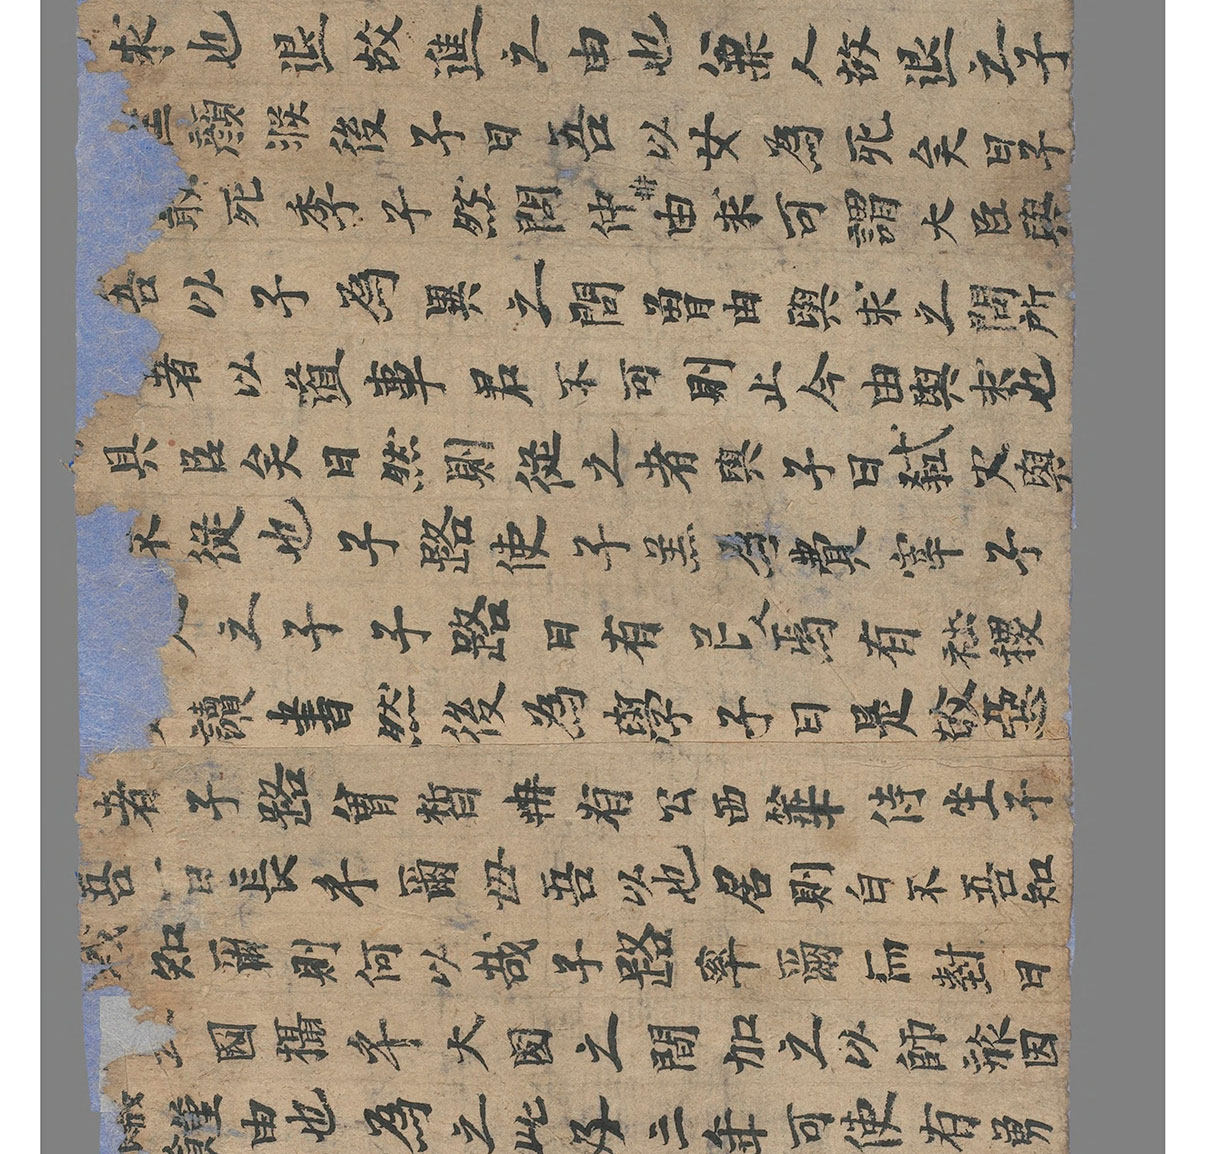 求也退故進之由也兼人故退之子
顏淵後子曰吾以女為死矣曰子
敢死季子然問仲由冉求可謂大臣與
吾以子為異之問曾由與求之問所
者以道事君不可則止今由與求也
具臣矣曰然則從之者與子曰弒父與
不從也子路使子羔為費宰子
之子子路曰有民人焉有社稷
讀書然後為學子曰是故惡
者子路曾晳冉有公西華侍坐子
吾一日長乎爾毋吾以也居則曰不吾知
或知爾則何以哉子路率爾而對曰
國攝乎大國之間加之以師旅因
饉由也為之比及三年可使有勇